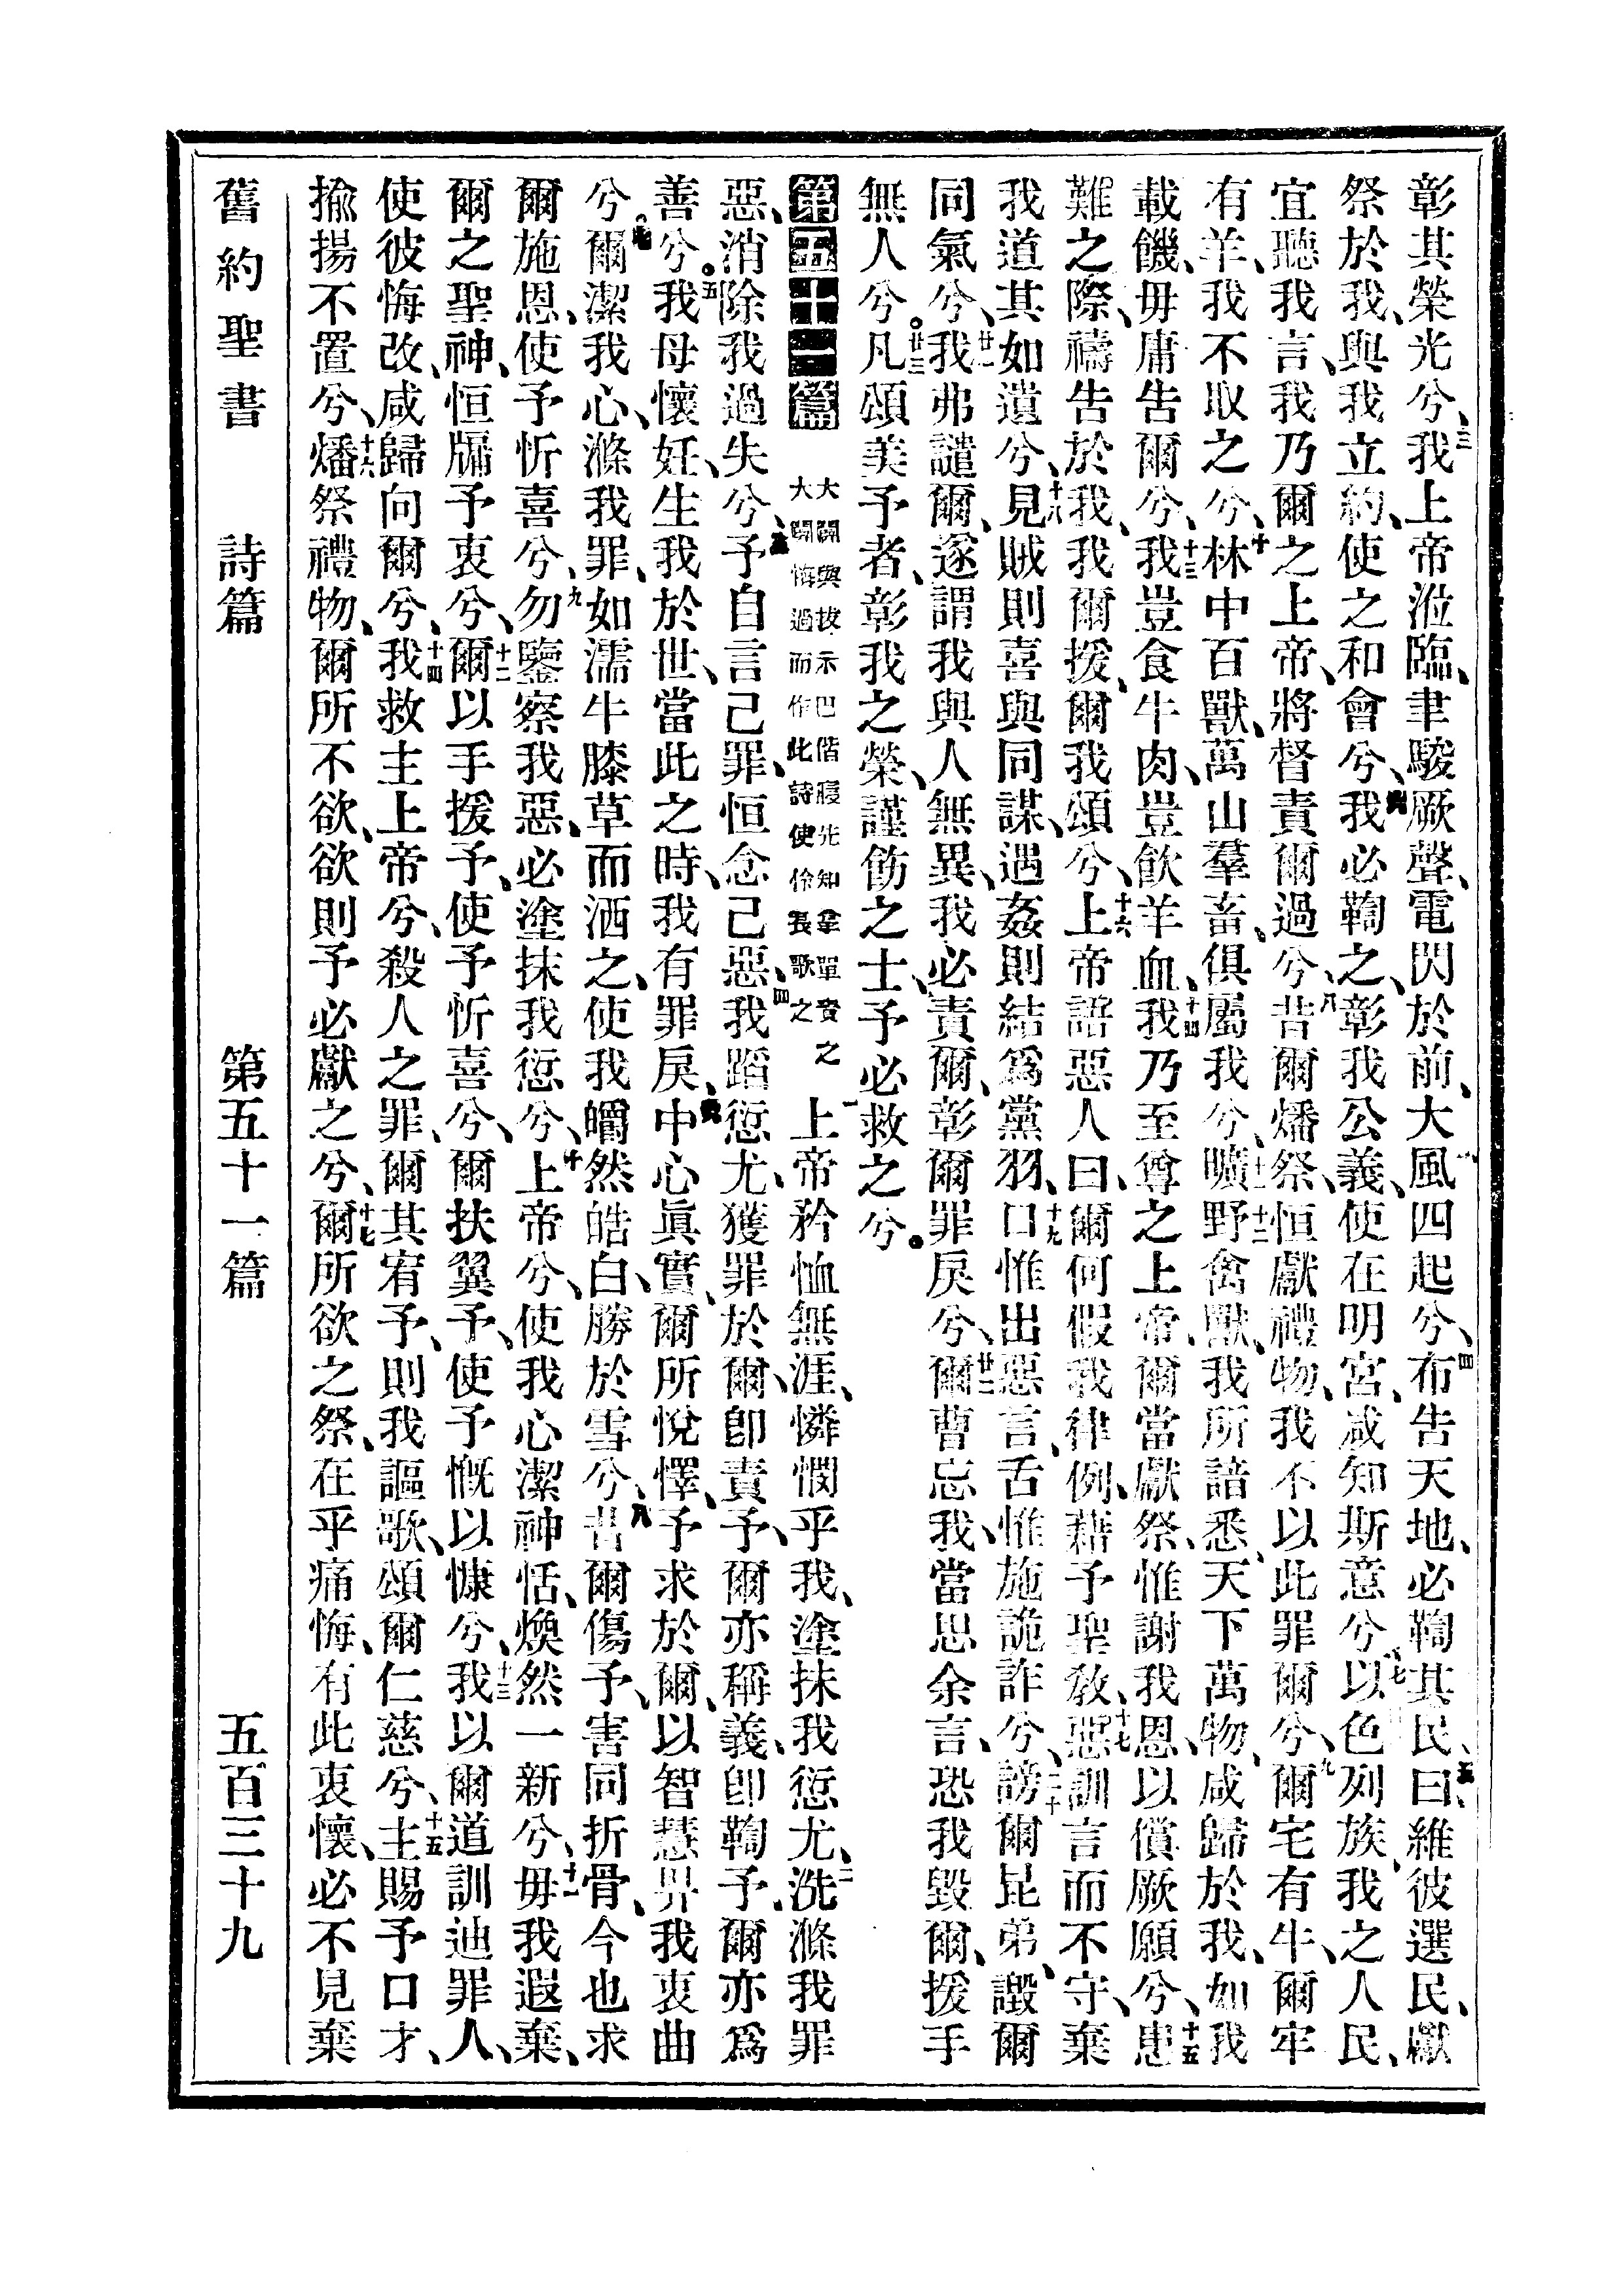 彰其榮光兮、三我上帝涖臨、聿駿厥聲、電閃於前、大風四起兮、四布告天地、必鞫其民、五曰、維彼選民、獻
祭於我、與我立約、使之和會兮、六我必鞫之、彰我公義、使在明宮、咸知斯意兮、七以色列族、我之人民、
宜聽我言、我乃爾之上帝、將督責爾過兮、八昔爾燔祭、恒獻禮物、我不以此罪爾兮、九爾宅有牛、爾牢
有羊、我不取之兮、十林中百獸、萬山羣畜、俱屬我兮、十一曠野禽獸、我所諳悉、天下萬物、咸歸於我、十二如我
載饑、毋庸告爾兮、十三我豈食牛肉、豈飲羊血、十四我乃至尊之上帝、爾當獻祭、惟謝我恩、以償厥願兮、十五患
難之際、禱告於我、我爾援、爾我頌兮、十六上帝語惡人曰、爾何假我律例、藉予聖敎、十七惡訓言而不守、棄
我道其如遺兮、十八見賊則喜與同謀、遇姦則結爲黨羽、十九口惟出惡言、舌惟施詭詐兮、二十謗爾昆弟、譭爾
同氣兮、廿一我弗譴爾、遂謂我與人無異、我必責爾、彰爾罪戾兮、廿二爾曹忘我、當思余言、恐我毀爾、援手
無人兮。廿三凡頌美予者、彰我之榮、謹飭之士、予必救之兮。
第五十一篇 大闢與拔示巴偕寢先知拿單責之大闢悔過而作此詩使伶長歌之 一上帝矜恤無涯、憐憫乎我、塗抹我愆尤、二洗滌我罪
惡、消除我過失兮、三予自言己罪、恒念己惡、四我蹈愆尤、獲罪於爾、卽責予、爾亦稱義、卽鞫予、爾亦爲
善兮。五我母懷妊、生我於世、當此之時、我有罪戾、六中心眞實、爾所悅懌、予求於爾、以智慧畀我衷曲
兮。七爾潔我心、滌我罪、如濡牛膝草而洒之、使我皭然皓白、勝於雪兮、八昔爾傷予、害同折骨、今也求
爾施恩、使予忻喜兮、九勿鑒察我惡、必塗抹我愆兮、十上帝兮、使我心潔神恬、煥然一新兮、十一毋我遐棄、
爾之聖神、恒牖予衷兮、十二爾以手援予、使予忻喜兮、爾扶翼予、使予慨以慷兮、十三我以爾道訓迪罪人、
使彼悔改、咸歸向爾兮、十四我救主上帝兮、殺人之罪、爾其宥予、則我謳歌、頌爾仁慈兮、十五主賜予口才、
揄揚不置兮、十六燔祭禮物、爾所不欲、欲則予必獻之兮、十七爾所欲之祭、在乎痛悔、有此衷懷、必不見棄
舊約聖書 詩篇 第五十一篇 五百三十九